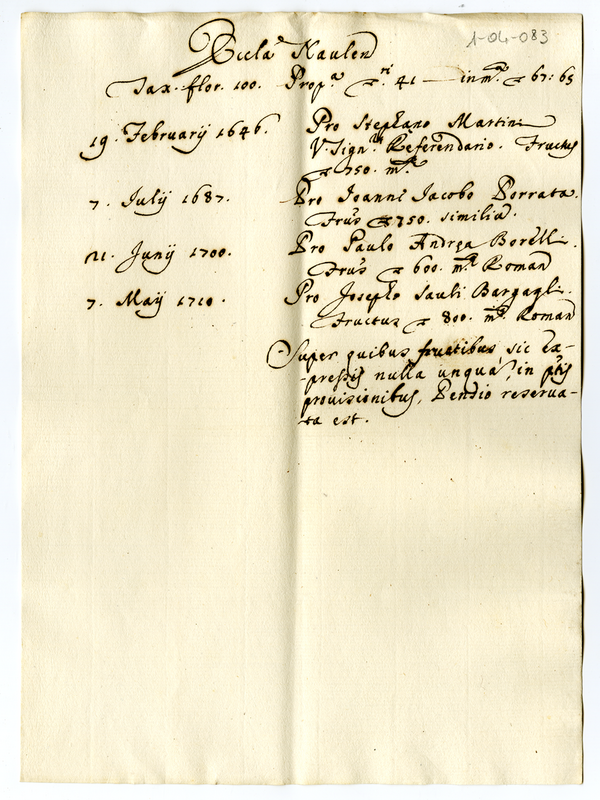 1-04-083
Eccla Naulen
Tax. flor. 100. Propa 41 — in mta 67: 65
19. Februarij 1646. Pro Stephano Martini
V. Sign. Referendario. Fructus
750. m.
7. Julij 1687. Pro Joanni Jacobo Porrata.
Frus 750. similia.
21. Junij 1700. Pro Paulo Andrea Borelli.
Frus 600. m. Roman
7. Maij 1710. Pro Josepho Sauli Bargagli.
Fructus 800. m. Roman
Super quibus fructibus, sic ex-
-pressis nulla unqua, in ptis
provisionibus, Pensio reserva-
ta est.